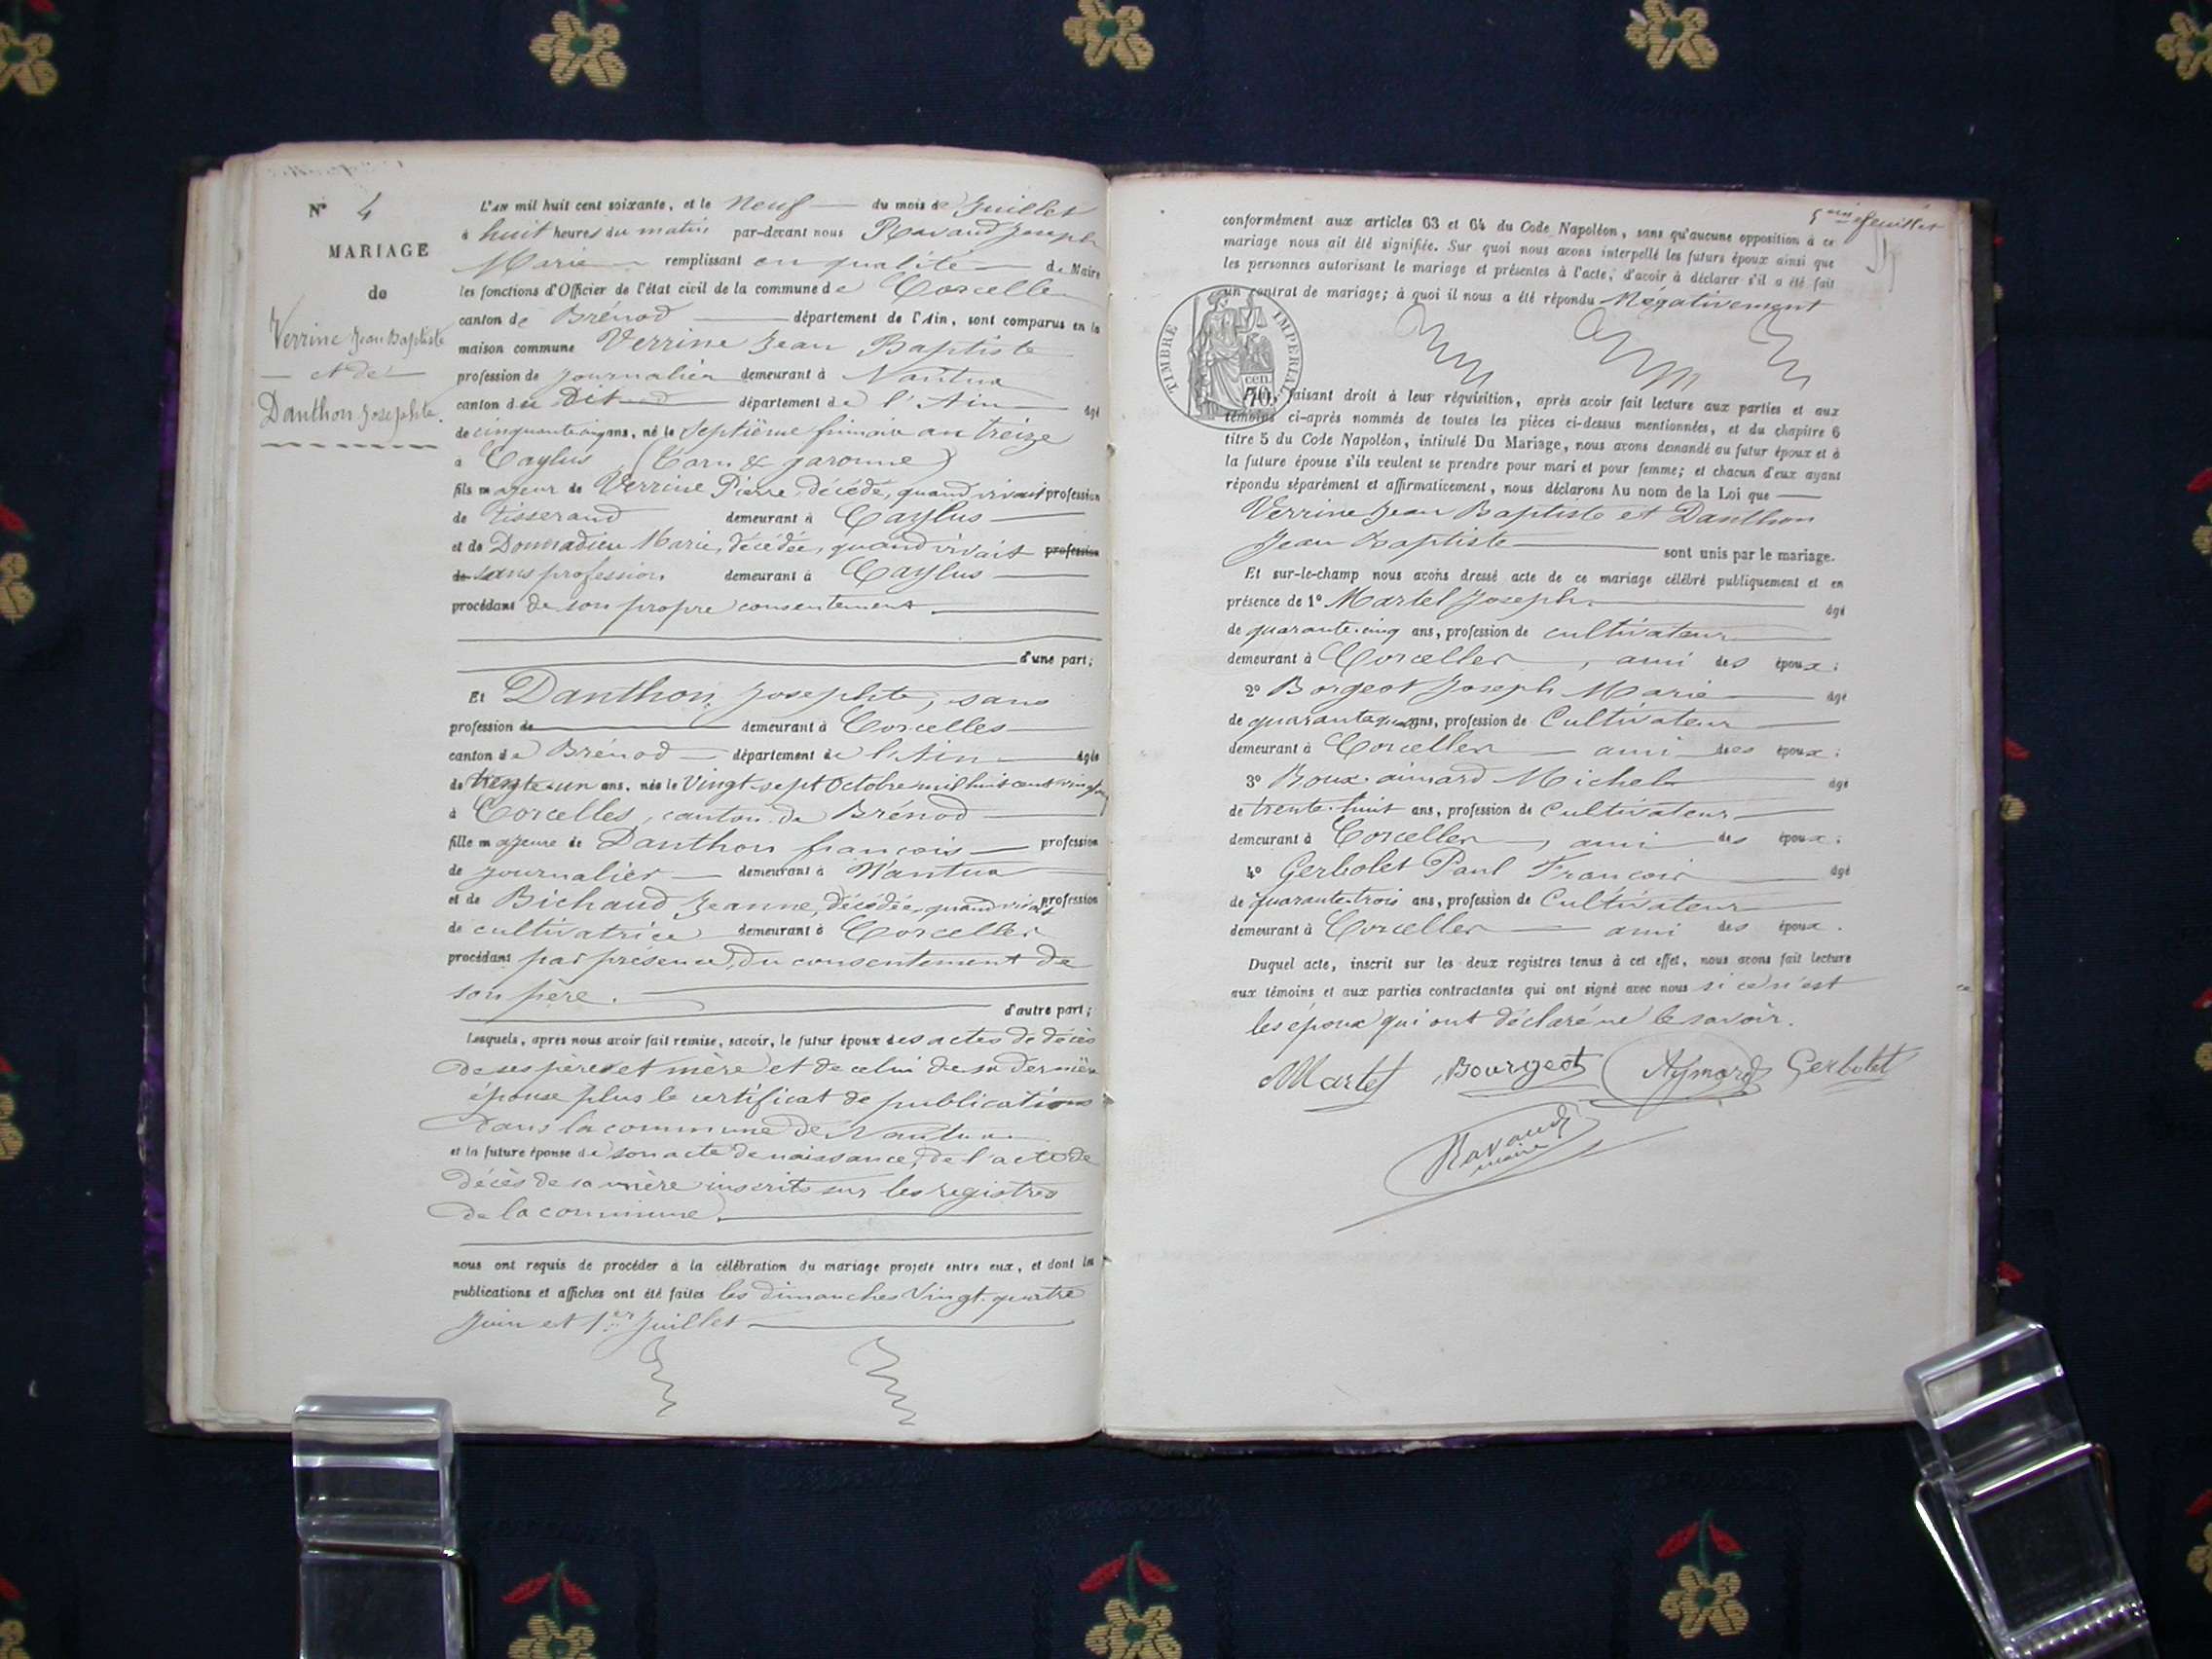 N° 4
MARIAGE
de
Verrine Jean Baptiste
et de
Danthon Josephte.
L'an mil huit cent soixante, et le Neuf du mois de Juillet
à huit heures du matin par-devant nous Ravaud Joseph
Marie remplissant en qualité de Maire
les fonctions d'Officier de l'état civil de la commune de Corcelles
canton de Brénod département de l'Ain, sont comparus en la
maison commune Verrine Jean Baptiste
profession de journalier demeurant à Nantua
canton du dit département de l'Ain âgé
de cinquante cinq ans, né le Septième frimaire an treize
à Caylus (Tarn & garonne)
fils majeur de Verrine Pierre, décédé, quand vivait profession
de tisserand demeurant à Caylus
et de Donnadieu Marie, décédée, quand vivait profession
de sans profession demeurant à Caylus
procédant de son propre consentement
d'une part;
Et Danthon, Josephte, sans
profession de demeurant à Corcelles
canton de Brénod département de l'Ain âgée
de trente-un ans, née le Vingt-sept Octobre mil huit cent vingt
à Corcelles, canton de Brénod
fille majeure de Danthon françois profession
de journalier demeurant à Nantua
et de Bichaud Jeanne, décédée, quand vivait profession
de cultivatrice demeurant à Corcelles
procédant par presence, du consentement de
son père.
d'autre part;
Lesquels, après nous avoir fait remise, savoir, le futur époux des actes de décès
de ses père et mère et de celui de sa dernière
épouse plus le certificat de publications
dans la commune de Nantua
et la future épouse de son acte de naissance, de l'acte de
décès de sa mère inscrits sur les registres
de la commune.
nous ont requis de procéder à la célébration du mariage projeté entre eux, et dont les
publications et affiches ont été faites les dimanches Vingt-quatre
Juin et 1er Juillet
5ème feuillet
conformément aux articles 63 et 64 du Code Napoléon, sans qu'aucune opposition à ce
mariage nous ait été signifiée. Sur quoi nous avons interpellé les futurs époux ainsi que
les personnes autorisant le mariage et présentes à l'acte, d'avoir à déclarer s'il a été fait
un contrat de mariage; à quoi il nous a été répondu Négativement
TIMBRE IMPERIAL
cen.
70.
faisant droit à leur réquisition, après avoir fait lecture aux parties et aux
témoins ci-après nommés de toutes les pièces ci-dessus mentionnées, et du chapitre 6
titre 5 du Code Napoléon, intitulé Du Mariage, nous avons demandé au futur époux et à
la future épouse s'ils veulent se prendre pour mari et pour femme; et chacun d'eux ayant
répondu séparément et affirmativement, nous déclarons Au nom de la Loi que
Verrine Jean Baptiste et Danthon
Jean Baptiste sont unis par le mariage.
Et sur-le-champ nous avons dressé acte de ce mariage célébré publiquement et en
présence de 1° Martel Joseph âgé
de quarante-cinq ans, profession de cultivateur
demeurant à Corcelles, ami des époux;
2° Borgeot Joseph Marie âgé
de quarante ans, profession de Cultivateur
demeurant à Corcelles ami des époux;
3° Roux-aimard Michel âgé
de trente-huit ans, profession de Cultivateur
demeurant à Corcelles, ami des époux;
4° Gerbolet Paul François âgé
de quarante trois ans, profession de Cultivateur
demeurant à Corcelles ami des époux.
Duquel acte, inscrit sur les deux registres tenus à cet effet, nous avons fait lecture
aux témoins et aux parties contractantes qui ont signé avec nous si ce n'est
les époux qui ont déclaré ne le savoir.
Martel Bourgeot Aymard Gerbolet
Ravaud
maire